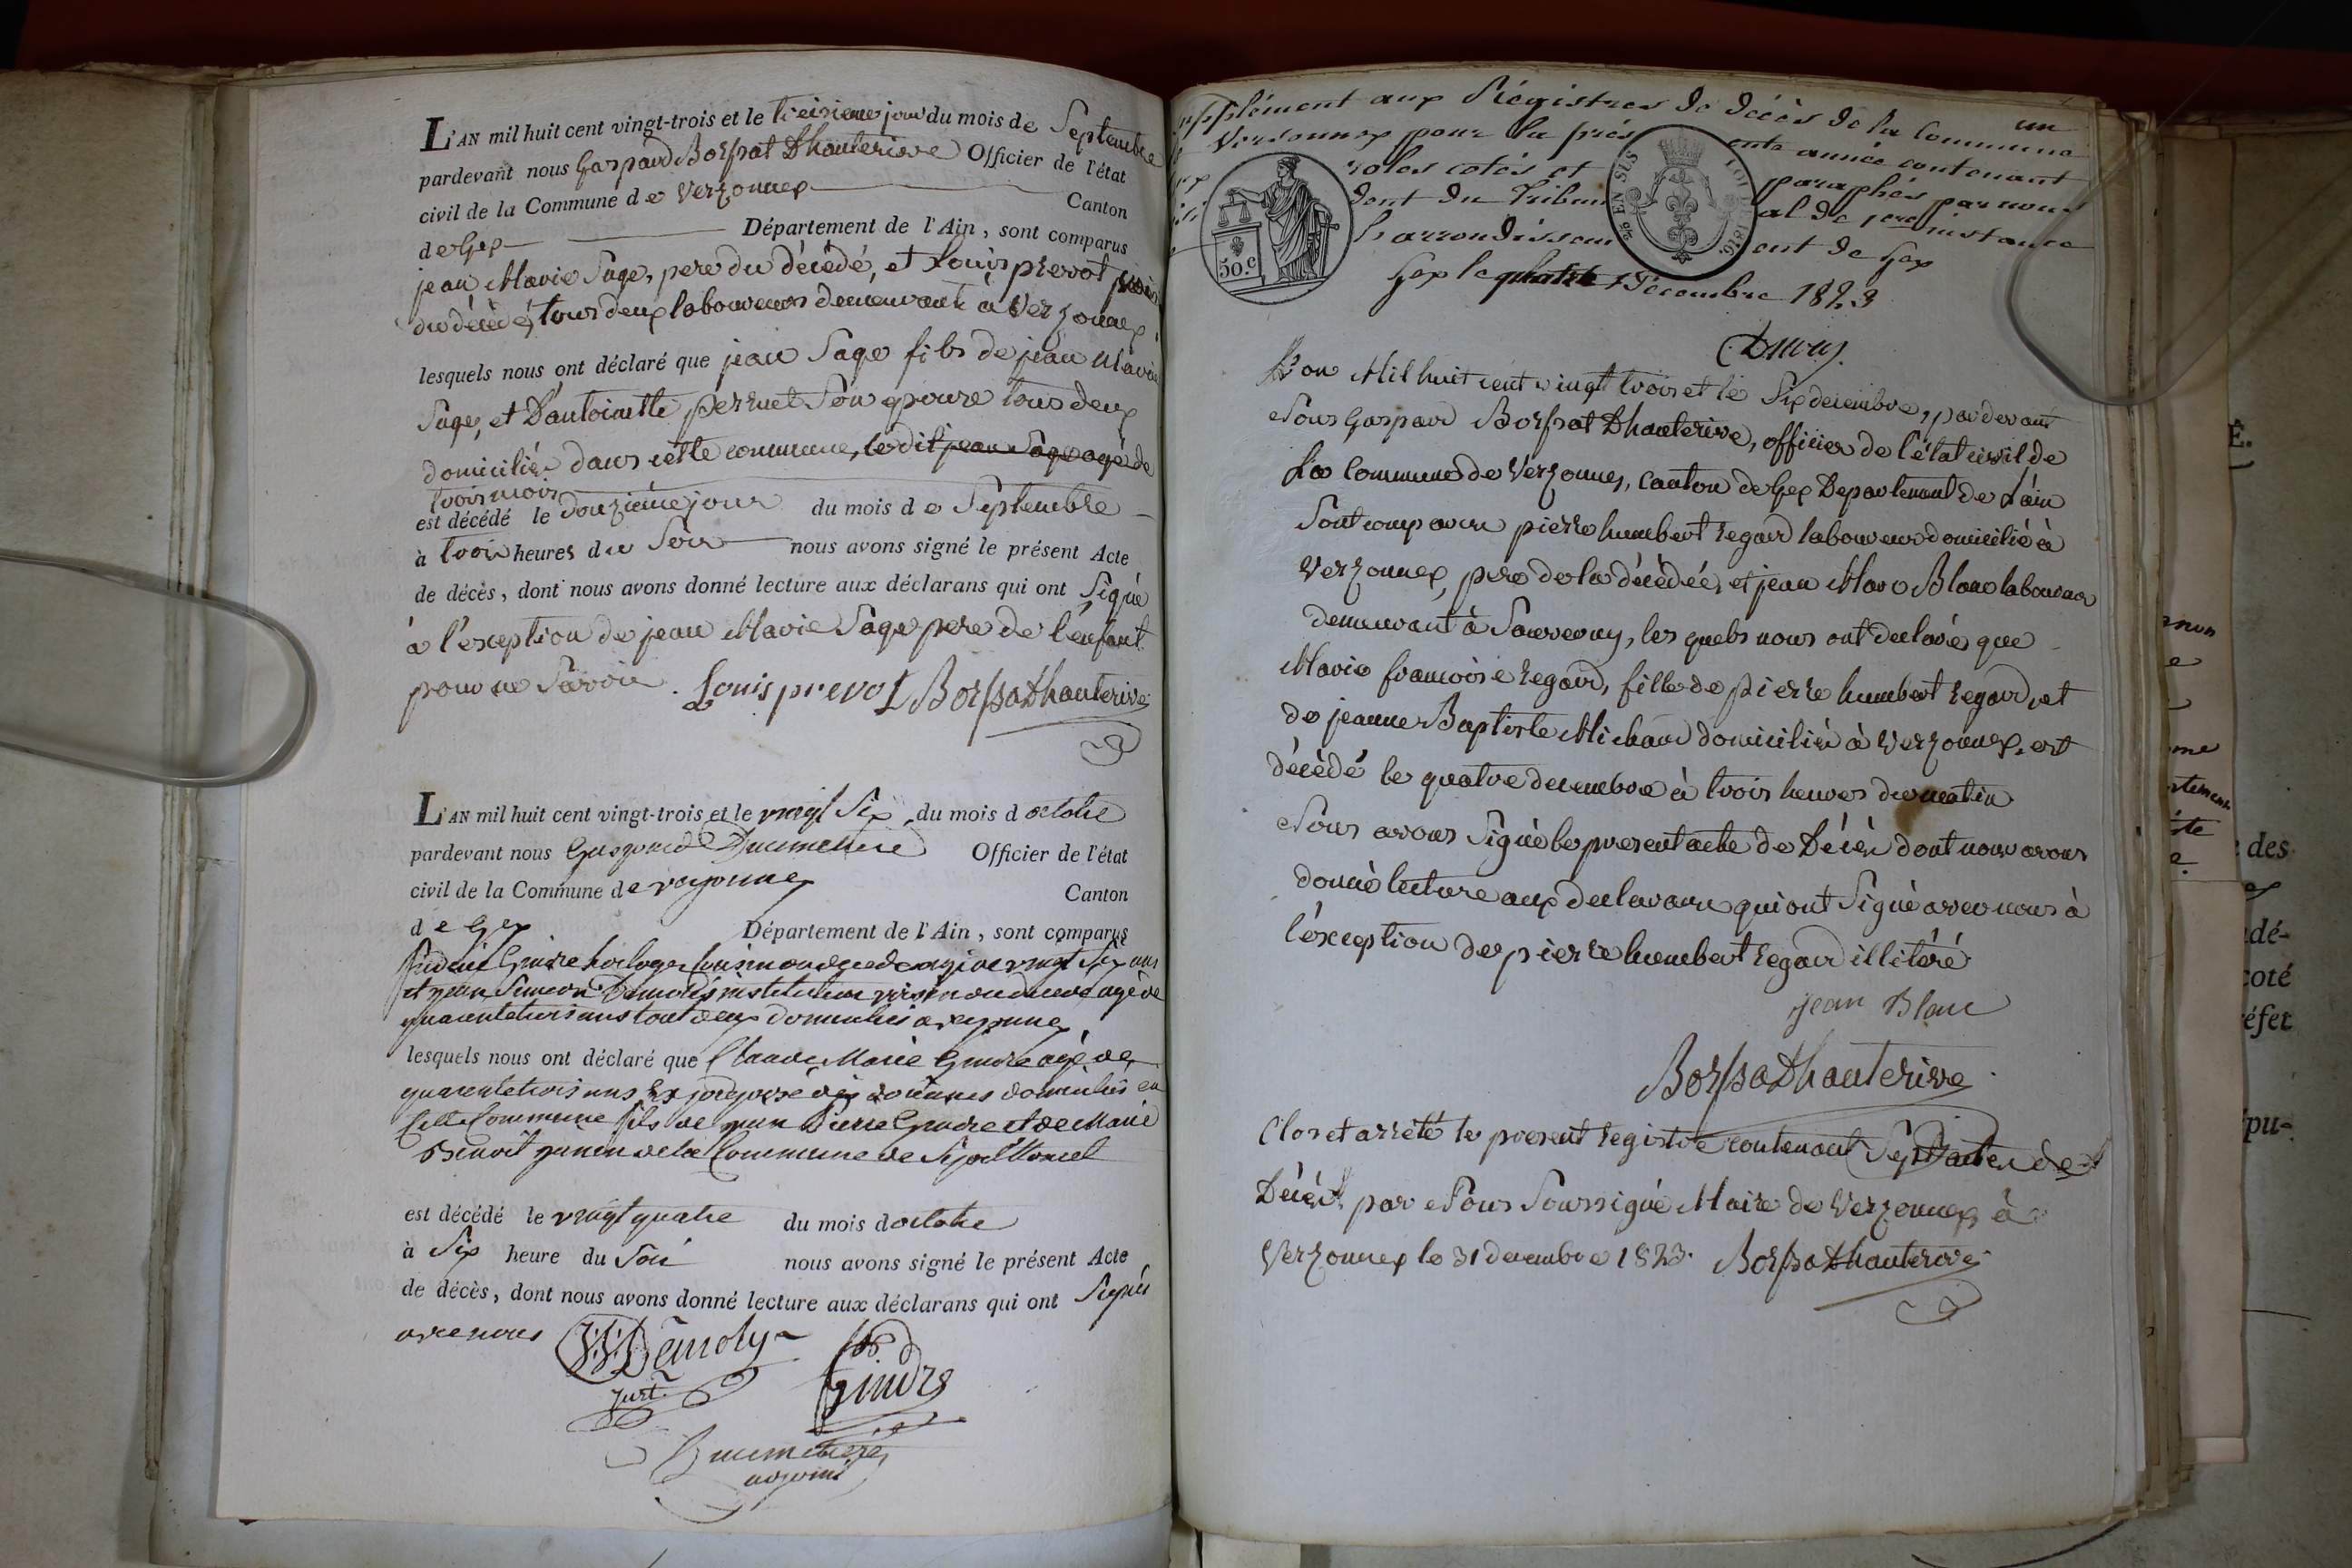 L'AN mil huit cent vingt-trois et le treisieme jour du mois de Septembre
pardevant nous Gaspard Borssat Dhauterive Officier de l'état
civil de la Commune de Verzonnex Canton
de Gex Département de l'Ain, sont comparus
jean Marie Sage, pere du décédé, et Louis prevot
du décédé, tous deux laboureurs demeurant à Verzonnex
lesquels nous ont déclaré que jean Sage fils de jean Marie
Sage, et D'antoinette pernet Son epouse tous deux
domiciliés dans cette commune, le dit jean Sage agé de
trois mois
est décédé le douzieme jour du mois de Septembre
à trois heures du Soir nous avons signé le présent Acte
de décès, dont nous avons donné lecture aux déclarans qui ont Signé
à l'exception de jean Marie Sage pere de l'enfant
pour ne Savoir. Louis prevot Borssat Dhauterive
L'AN mil huit cent vingt-trois et le vingt Six du mois d octobre
pardevant nous Gaspard Ducimetiere Officier de l'état
civil de la Commune de versonnex Canton
de Gex Département de l'Ain, sont comparus
Gindre horloger voisin du decede agé de vingt Six ans
et jean Simeon instituteur voisin du decede agé de
quarante trois ans tout deux domiciliés a versonnex
lesquels nous ont déclaré que Claude Marie Gindre agé de
quarante trois ans Ex preposé des douanes domicilié en
Cette Commune fils de jean Pierre Gindre et de Marie
Benoit de la Commune de Septmoncel
est décédé le vingt quatre du mois d octobre
à Six heure du Soir nous avons signé le présent Acte
de décès, dont nous avons donné lecture aux déclarans qui ont Signés
avec nous
Gindre
Ducimetiere
adjoint
Supplément aux Régistres de décès de la Commune
de Versonnex pour la présente année contenant un
roles cotés et paraphés par nous
dent du Tribunal de 1ere instance
L'arrondissement de Gex
Gex le quatre Décembre 1823
50.c
EN SUS
LOI DE 1816.
L'an Mil huit cent vingt trois et le Six decembre, par devant
Nous Gaspard Borssat Dhauterive, officier de l'état civil de
La Commune de Verzonnex, Canton de Gex Departement de L'ain
Sont comparu pierre humbert regard laboureur domicilié à
Verzonnex, pere de la décédée, et jean Marc Blanc laboureur
demeurant à Sauverny, les quels nous ont declarés que
Marie francoise regard, fille de pierre humbert regard, et
de jeanne Baptiste Michaud domicilié à Verzonnex, est
décédé le quatre decembre à trois heures du matin
Nous avons Signé le present acte de Décès dont nous avons
donné lecture aux declarans qui ont Signé avec nous à
l'exception de pierre humbert regard illitéré
jean Blanc
Borssat Dhauterive
Clos et arrété le present registre contenant Sept actes de
Décès par Nous Soussigné Maire de Verzonnex à
Verzonnex le 31 decembre 1823. Borssat Dhauterive